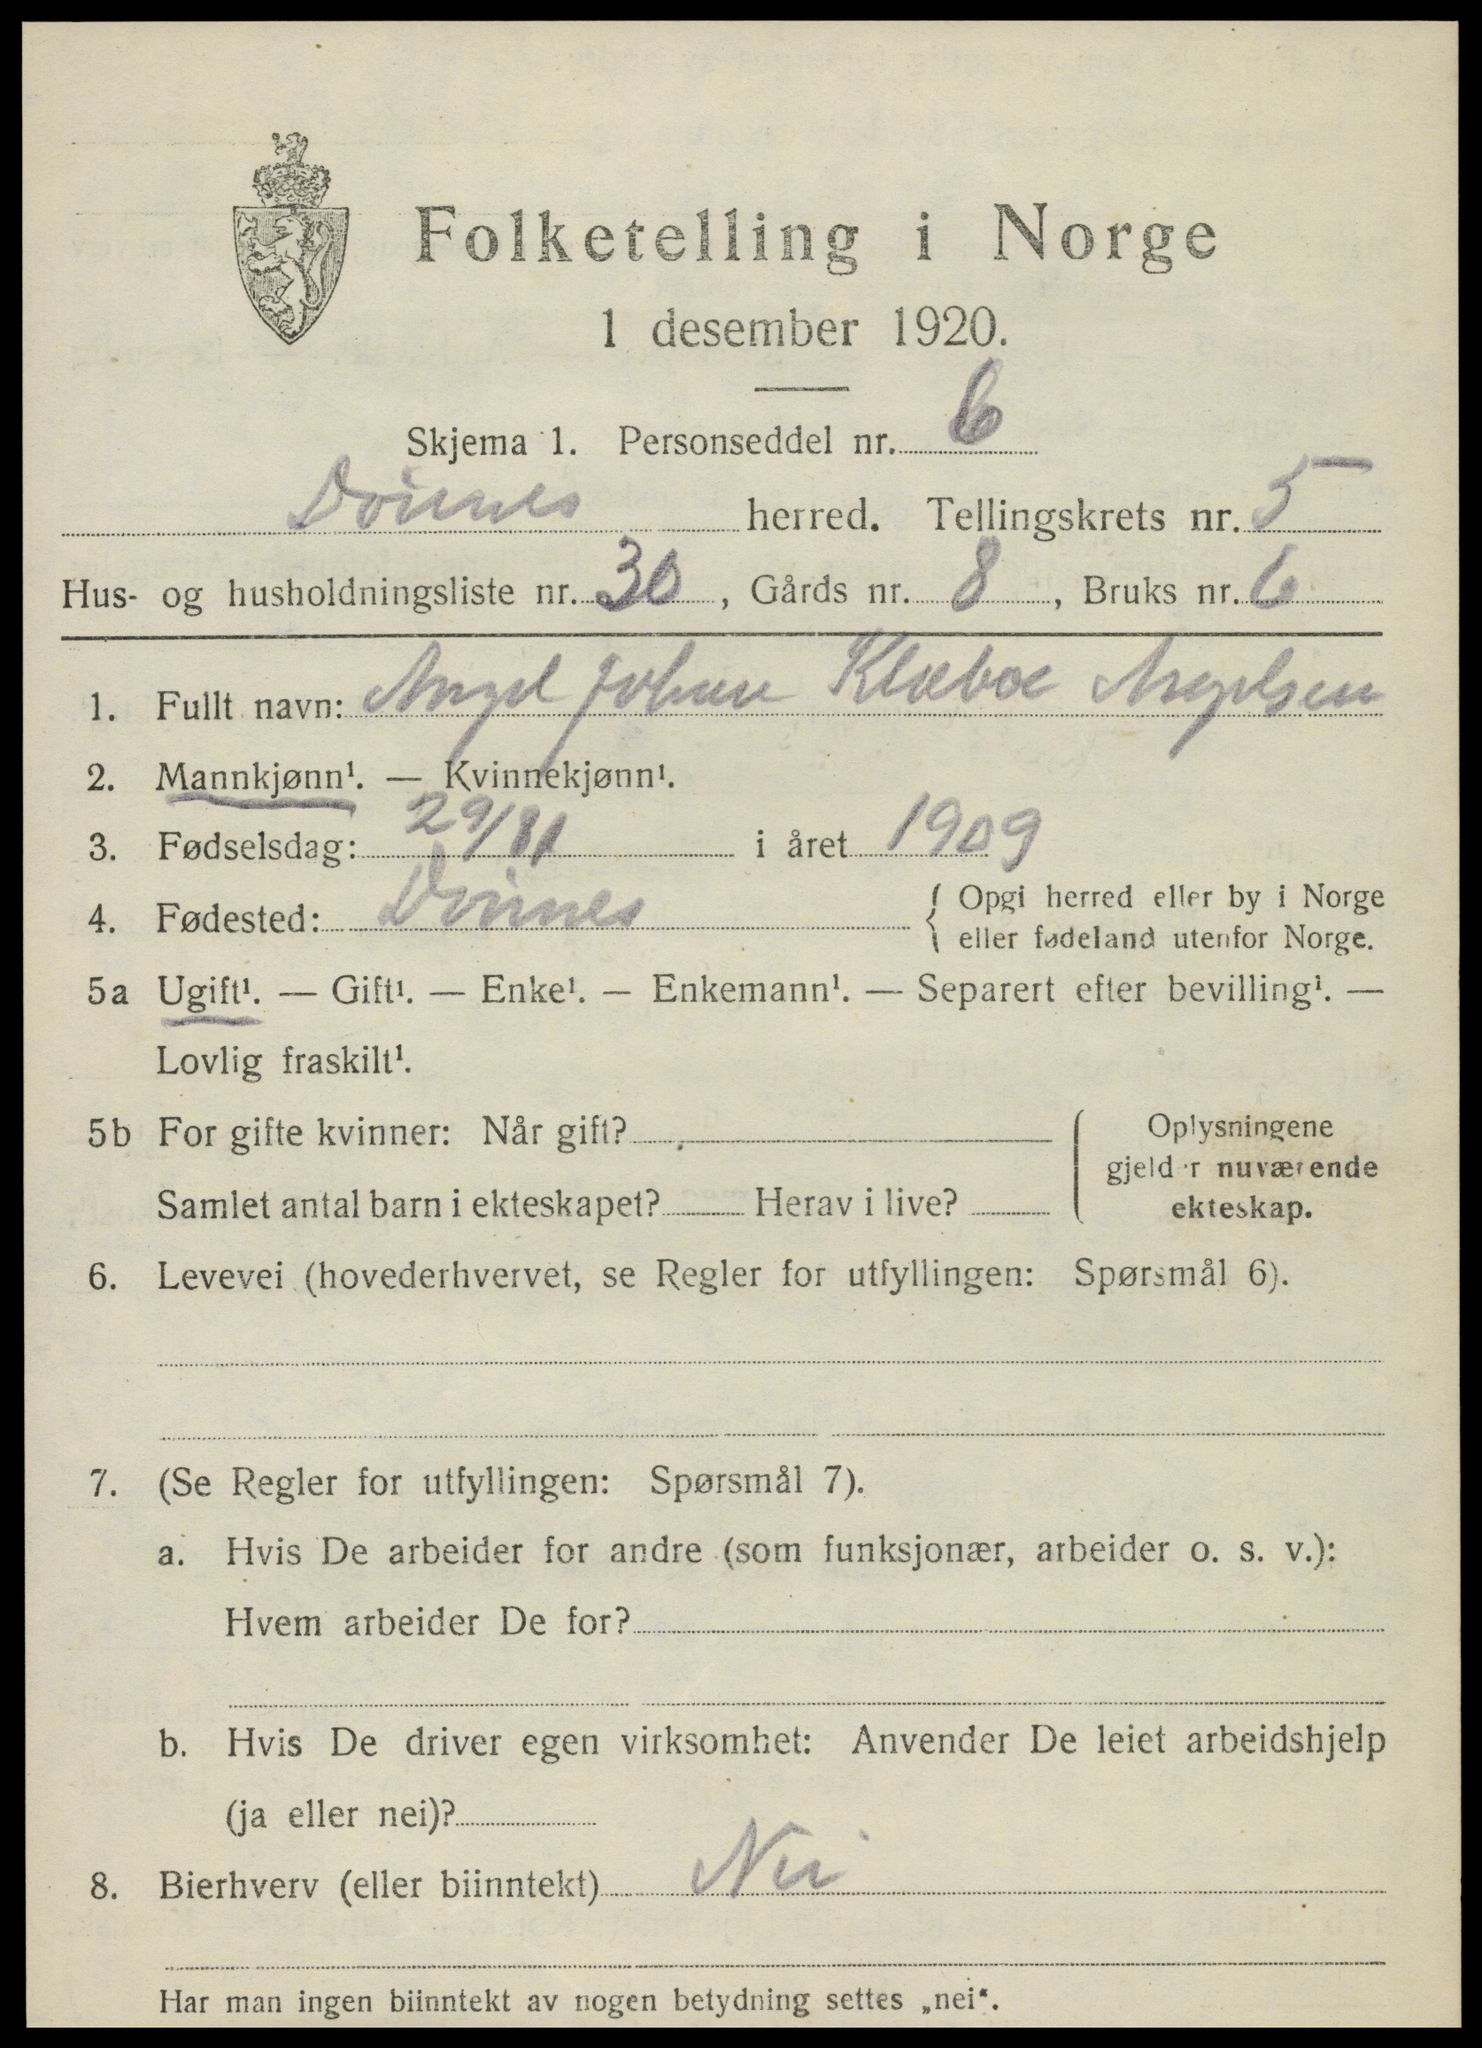 Folketelling i Norge
1 desember 1920.
Skjema 1. Personseddel nr. 6
Dönnes herred. Tellingskrets nr. 5
Hus- og husholdningsliste nr. 30, Gårds nr. 8, Bruks nr. 6
1. Fullt navn: Angel Johan Klæboe Angelsen
2. Mannkjønn¹. — Kvinnekjønn¹.
3. Fødselsdag: i året 1909
4. Fødested: Dönnes { Opgi herred eller by i Norge
eller fødeland utenfor Norge.
5a Ugift¹. — Gift¹. — Enke¹. — Enkemann¹. — Separert efter bevilling¹. —
Lovlig fraskilt¹.
5b For gifte kvinner: Når gift? Oplysningene
gjelder nuværende
Samlet antal barn i ekteskapet? Herav i live? ekteskap.
6. Levevei (hovederhvervet, se Regler for utfyllingen: Spørsmål 6).
7. (Se Regler for utfyllingen: Spørsmål 7).
a. Hvis De arbeider for andre (som funksjonær, arbeider o. s. v.):
Hvem arbeider De for?
b. Hvis De driver egen virksomhet: Anvender De leiet arbeidshjelp
(ja eller nei)?
8. Bierhverv (eller biinntekt) Nei
Har man ingen biinntekt av nogen betydning settes „nei“.